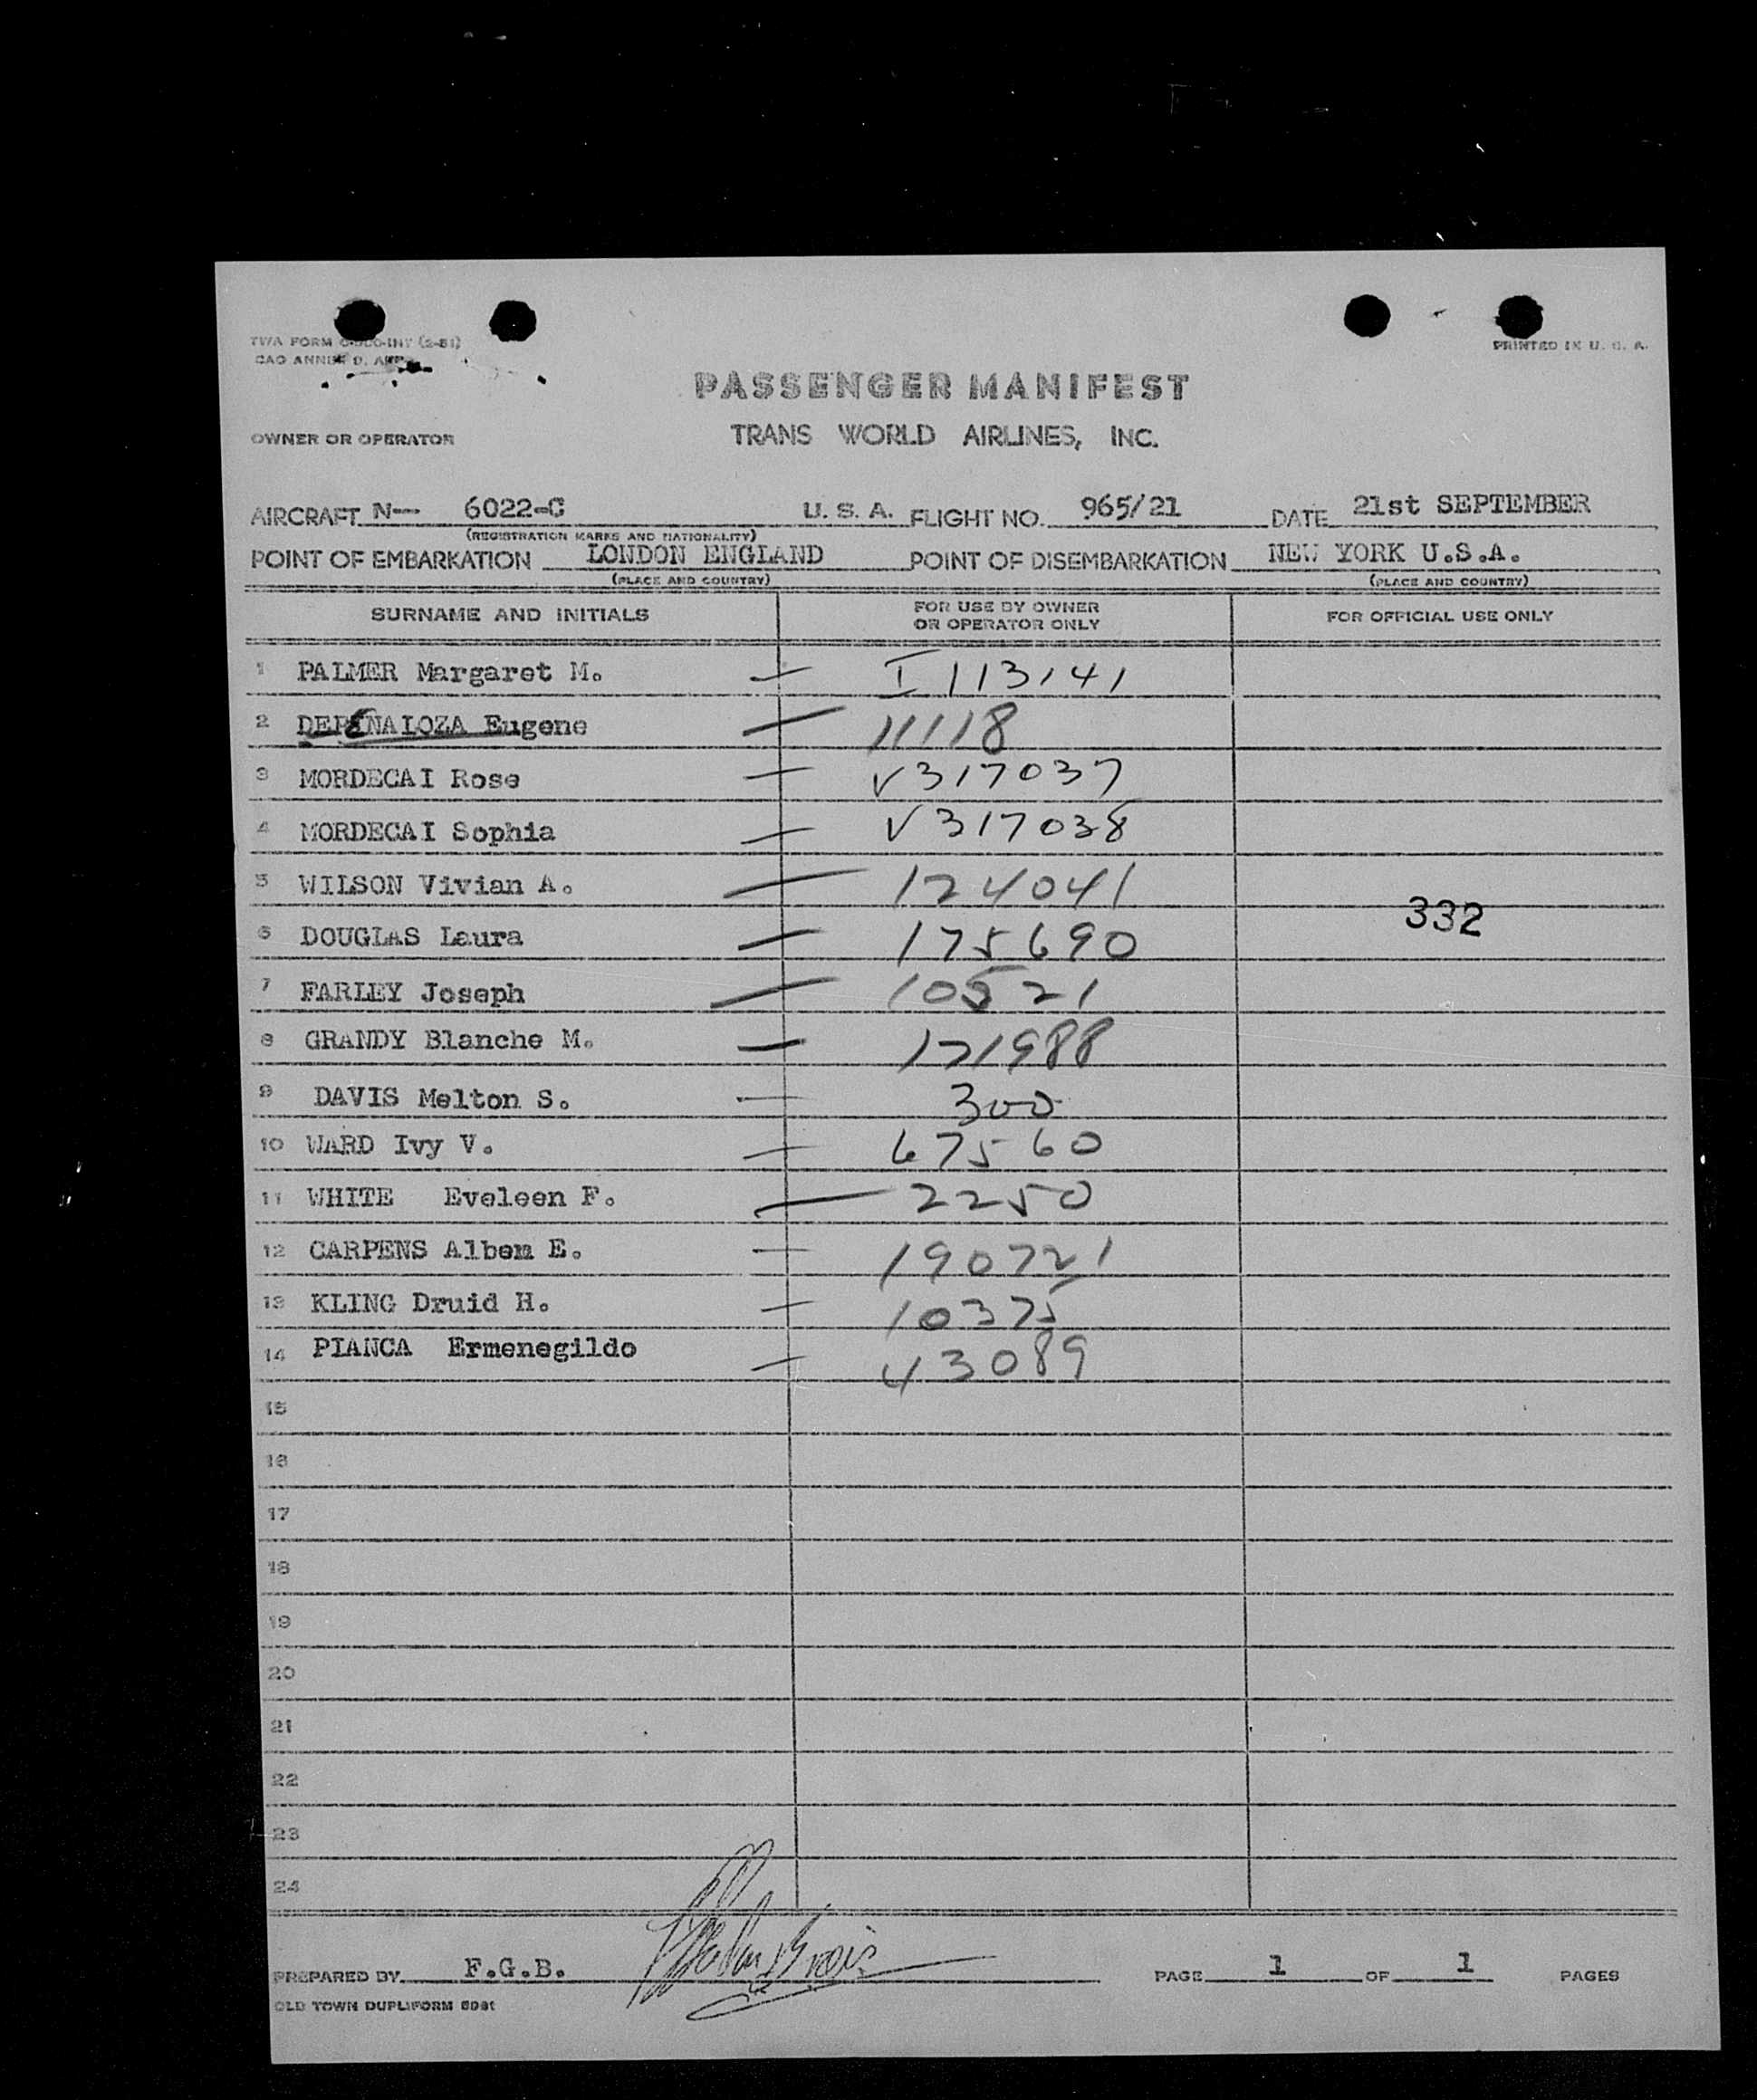 TWA FORM (2-51)
PRINTED IN U. S. A.
PASSENGER MANIFEST
OWNER OR OPERATOR TRANS WORLD AIRLINES, INC.
AIRCRAFT N-- 6022-C U. S. A. FLIGHT NO. 965/21 DATE 21st SEPTEMBER
(REGISTRATION MARKS AND NATIONALITY)
POINT OF EMBARKATION LONDON ENGLAND POINT OF DISEMBARKATION NEW YORK U.S.A.
(PLACE AND COUNTRY) (PLACE AND COUNTRY)
SURNAME AND INITIALS FOR USE BY OWNER OR OPERATOR ONLY FOR OFFICIAL USE ONLY
1 PALMER Margaret M. — I 113141
2 DEPENALOZA Eugene — 11118
3 MORDECAI Rose — V317037
4 MORDECAI Sophia — V317038
5 WILSON Vivian A. — 124041
332
6 DOUGLAS Laura — 175690
7 FARLEY Joseph — 10521
8 GRANDY Blanche M. — 121988
9 DAVIS Melton S. — 300
10 WARD Ivy V. — 67560
11 WHITE Eveleen F. — 2250
12 CARPENS Albem E. — 190721
13 KLING Druid H. — 10375
14 PIANCA Ermenegildo — 43089
15
16
17
18
19
20
21
22
23
24
PREPARED BY F.G.B. PAGE 1 OF 1 PAGES
OLD TOWN DUPLIFORM